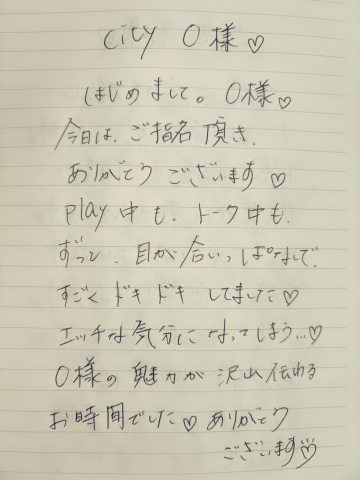 City O様♡
はじめまして。O様♡
今日は、ご指名頂き、
ありがとうございます♡
play中も、トーク中も、
ずっと、目が合いっぱなしで、
すごくドキドキしてました♡
エッチな気分になってしまう...♡
O様の魅力が沢山伝わる
お時間でした♡ありがとう
ございます♡